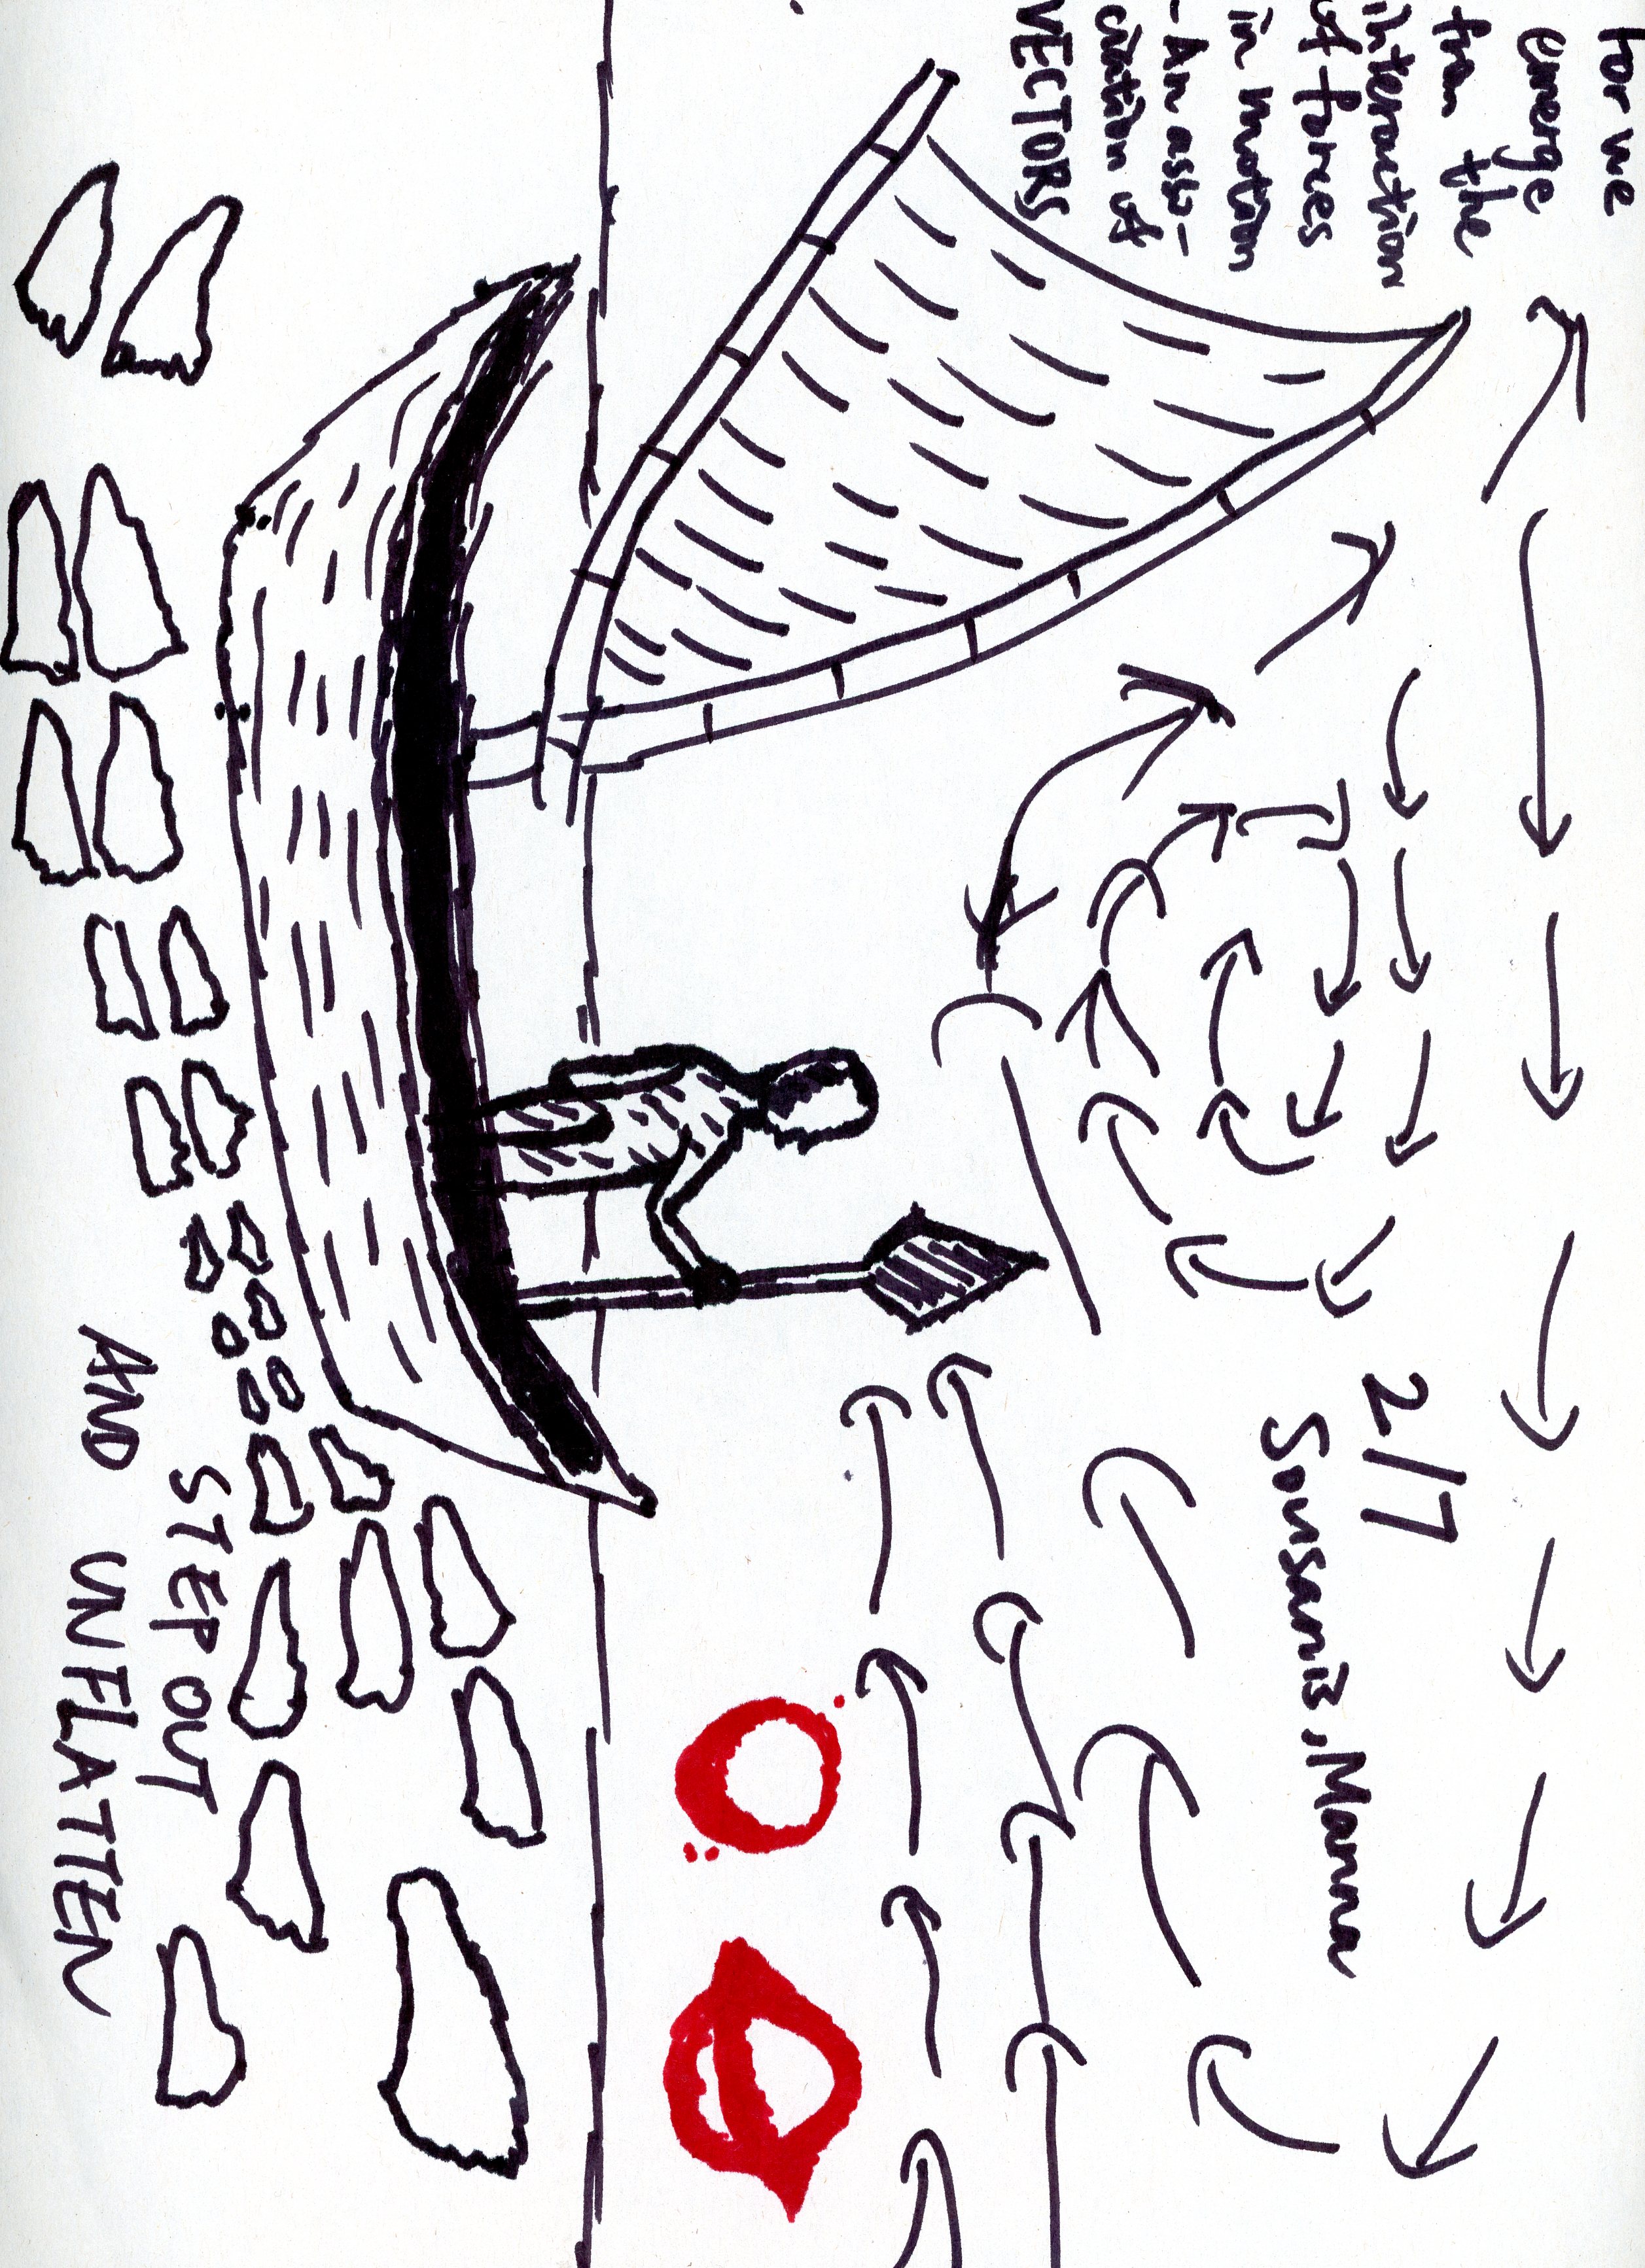 For we
emerge
from the
interaction
of forces
in motion
- An asso-
ciation of
VECTORS
2/7
Sousanis, Manna
STEP OUT
AND UNFLATTEN